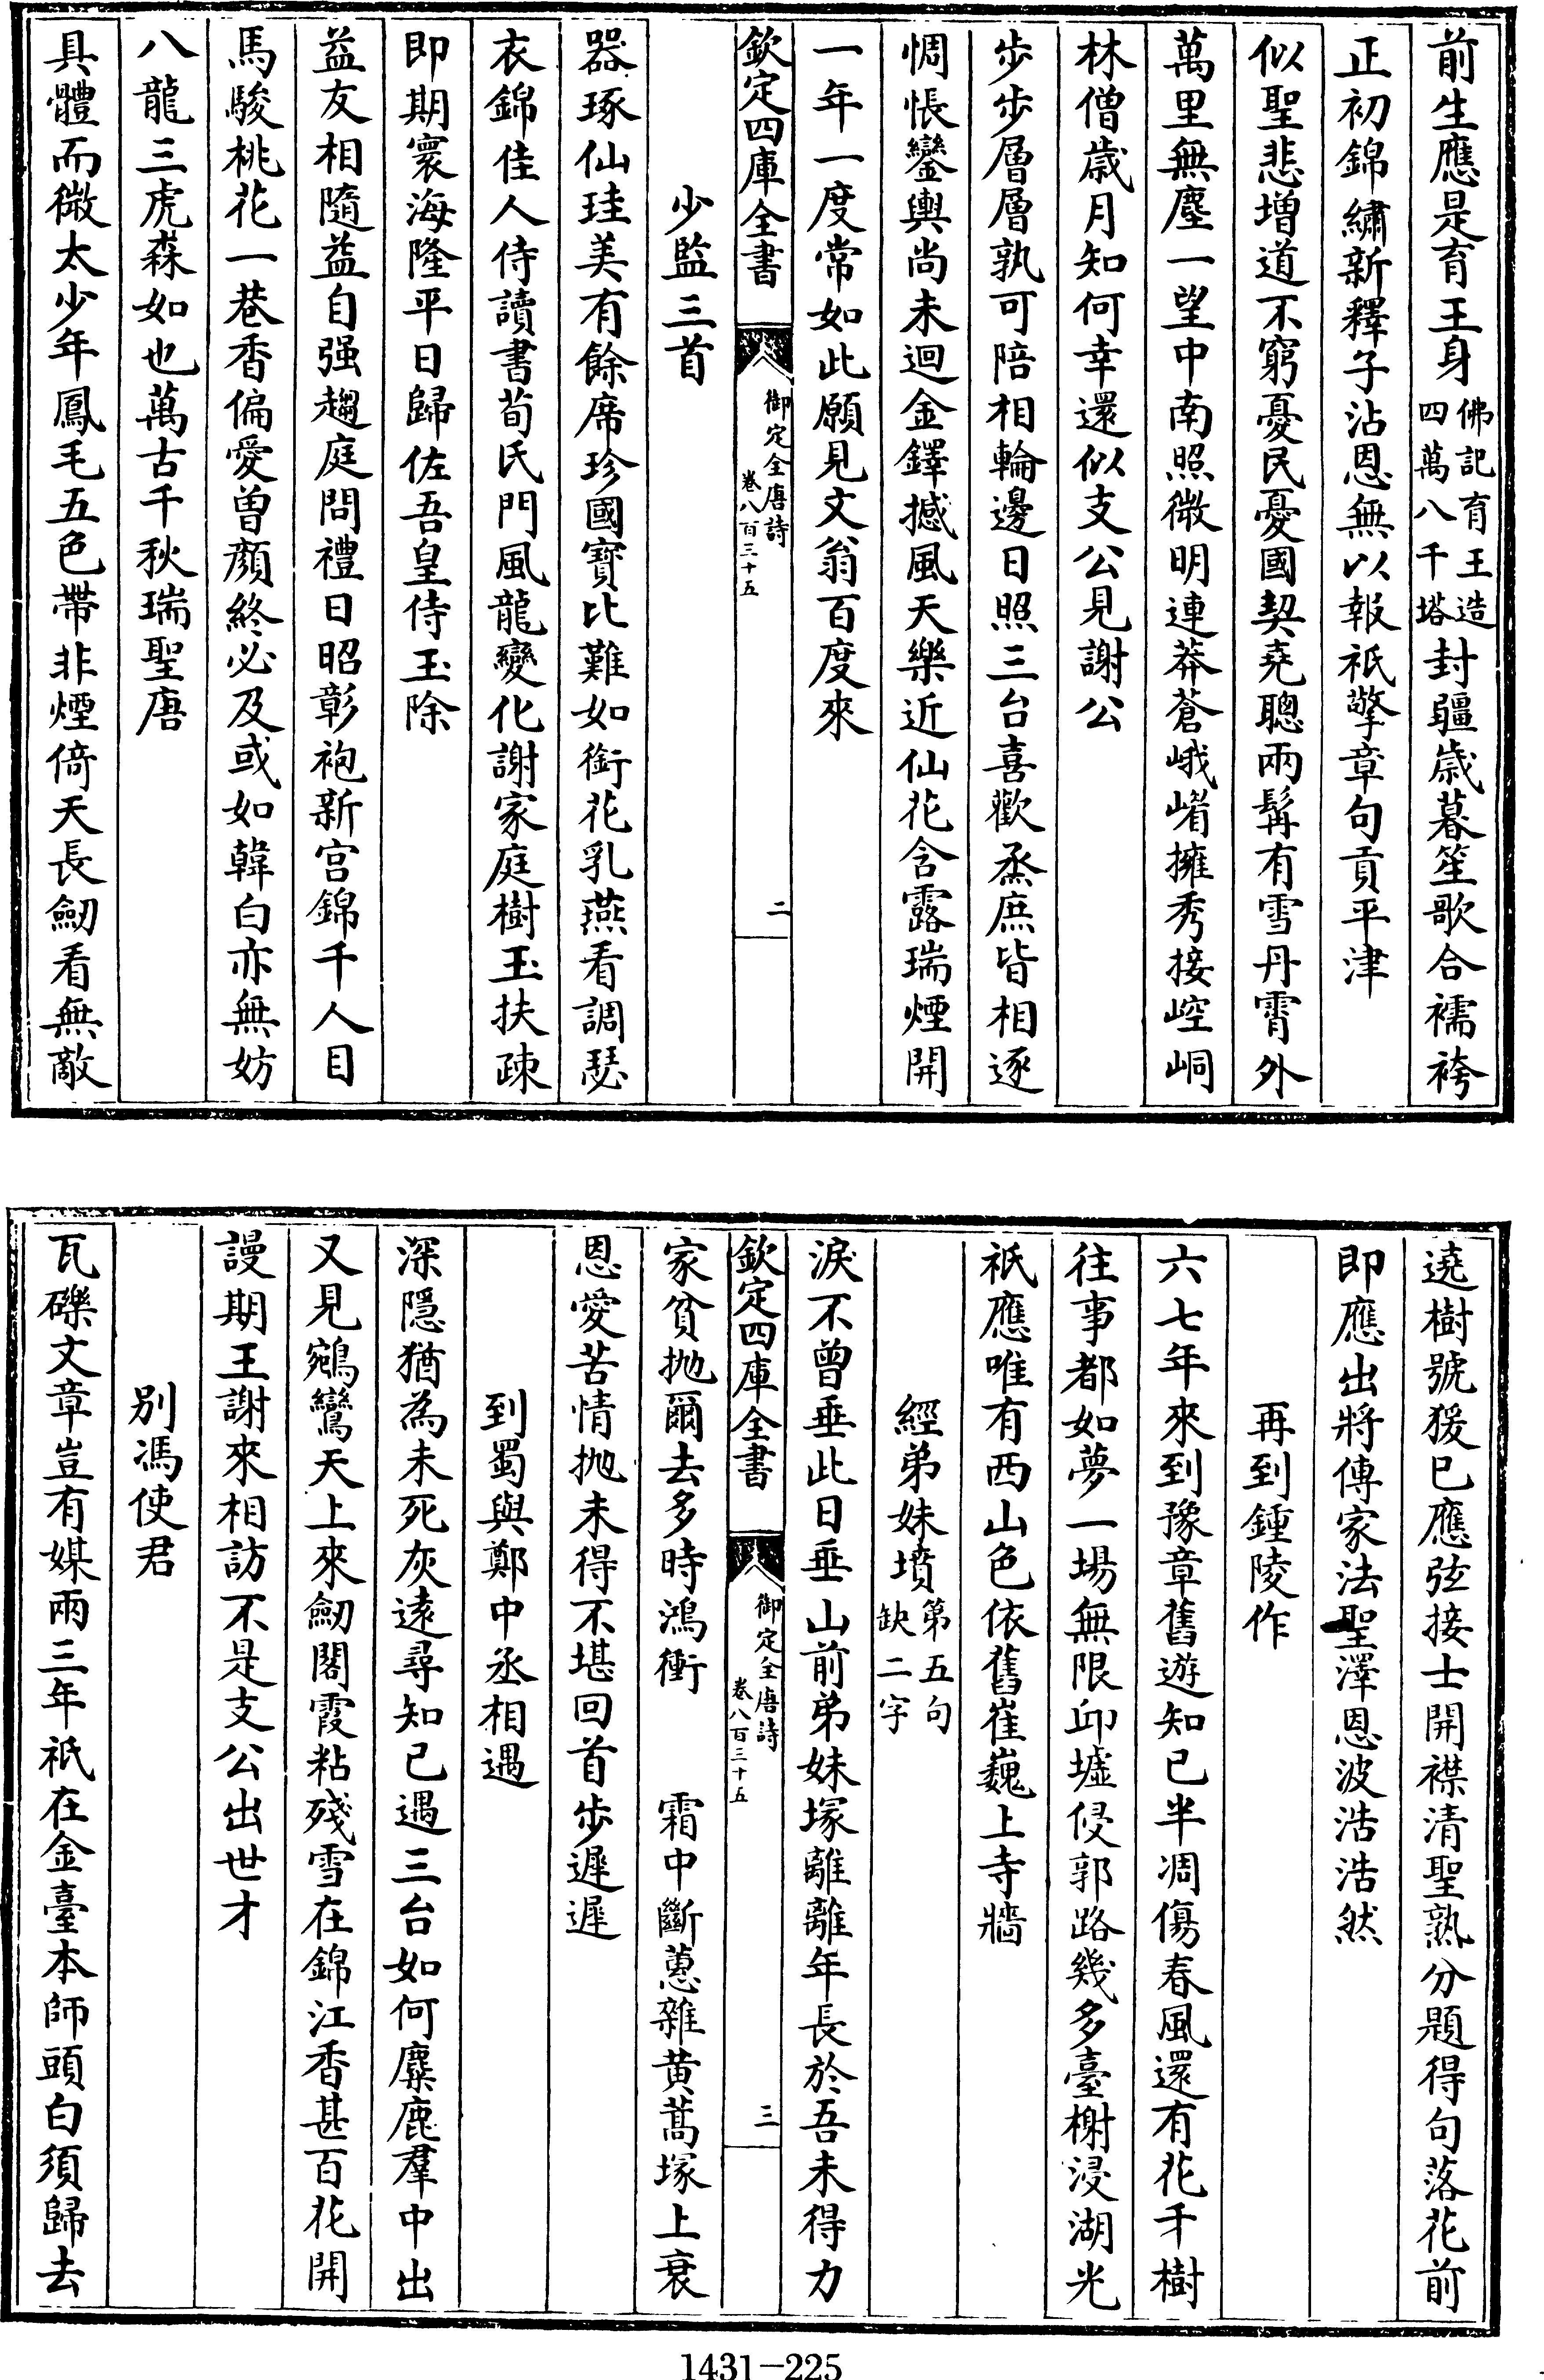 前生應是育王身佛記育王造四萬八千塔封疆歲暮笙歌合襦袴
正初錦繡新釋子沾恩無以報祇擎章句貢平津
似聖悲增道不窮憂民憂國契堯聰兩髯有雪丹霄外
萬里無塵一望中南照微明連莽蒼峨嵋擁秀接崆峒
林僧歲月知何幸還似支公見謝公
步步層層孰可陪相輪邊日照三台喜歡烝庶皆相逐
惆悵鑾輿尚未迴金鐸撼風天樂近仙花含露瑞煙開
一年一度常如此願見文翁百度來
欽定四庫全書
御定全唐詩
卷八百三十五
二
少監三首
器琢仙珪美有餘席珍國寶比難如銜花乳燕看調瑟
衣錦佳人侍讀書荀氏門風龍變化謝家庭樹玉扶疎
即期寰海隆平日歸佐吾皇侍玉除
益友相隨益自强趨庭問禮日昭彰袍新宮錦千人目
馬駿桃花一巷香偏愛曾顏終必及或如韓白亦無妨
八龍三虎森如也萬古千秋瑞聖唐
具體而微太少年鳳毛五色帶非煙倚天長劒看無敵
遶樹號猨已應弦接士開襟清聖熟分題得句落花前
即應出將傳家法聖澤恩波浩浩然
再到鍾陵作
六七年來到豫章舊遊知已半凋傷春風還有花千樹
往事都如夢一場無限邱墟侵郭路幾多臺榭浸湖光
祇應唯有西山色依舊崔巍上寺牆
經弟妹墳第五句缺二字
淚不曾垂此日垂山前弟妹塚離離年長於吾未得力
欽定四庫全書
御定全唐詩
卷八百三十五
三
家貧抛爾去多時鴻衝　　霜中斷蕙雜黄蒿塚上衰
恩愛苦情抛未得不堪回首步遲遲
到蜀與鄭中丞相遇
深隱猶為未死灰遠尋知已遇三台如何麋鹿羣中出
又見鵷鸞天上來劒閣霞粘殘雪在錦江香甚百花開
謾期王謝來相訪不是支公出世才
别馮使君
瓦礫文章豈有媒兩三年祇在金臺本師頭白須歸去
1431-225